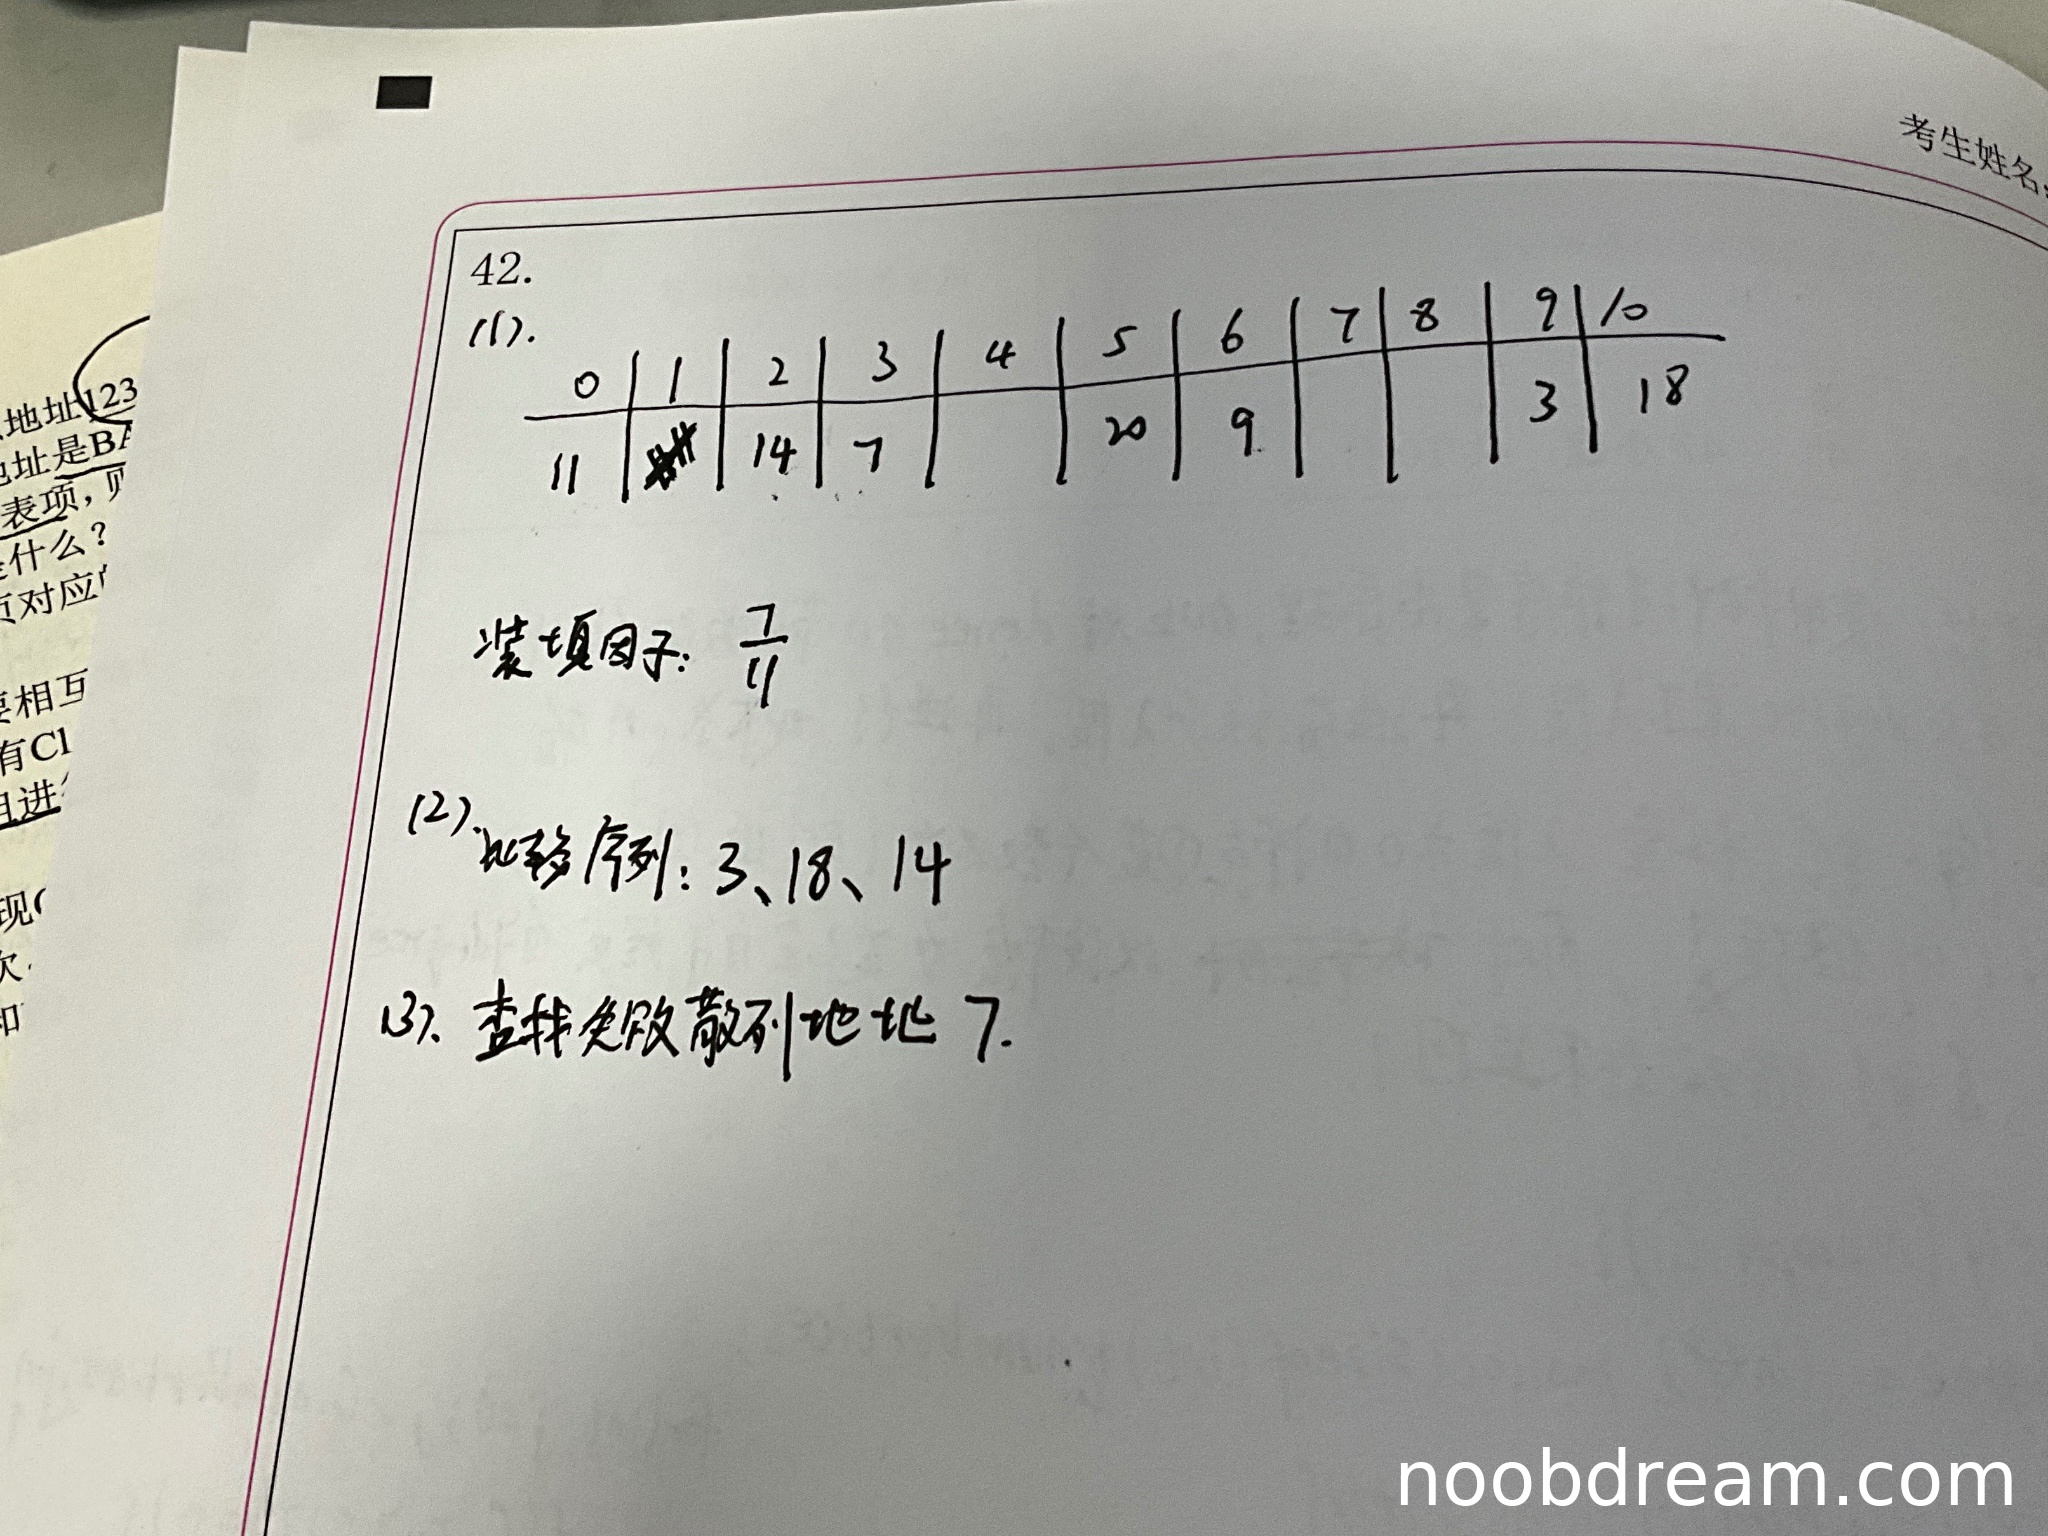 考生姓名:
42.
(1).
0 1 2 3 4 5 6 7 8 9 10
11 14 7 20 9 3 18
装填因子: 7/11
(2).
比较序列: 3、18、14
(3). 查找失败散列地址 7.
地址123
地址是BA
表项,
是什么?
页对应
要相互
有Cl
且进
现
次
和
noobdream.com